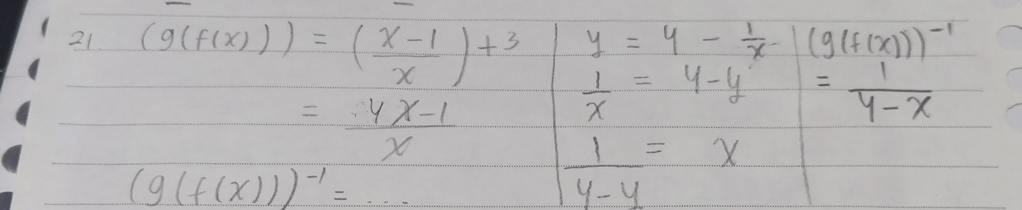 21. (g(f(x))) = (x-1/x) + 3
= 4x-1/x
(g(f(x)))⁻¹ = ...
y = 4 - 1/x
1/x = 4-y
1/4-y = x
(g(f(x)))⁻¹
= 1/4-x